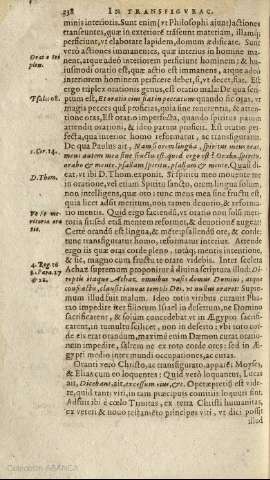 338 IN TRANSFIGVRAC.
minis interioris. Sunt enim (vt Philosophi aiunt) actiones
transeuntes, quæ in exteriorẽ trãseunt materiam, illamq;
perficiunt, vt elaborare lapidem, domum ædificare. Sunt
verò actiones immanentes, quæ interius in homine ma-
nent, atque adeò interiorem perficiunt hominem; & hu-
Oratio tri
plex.
iusmodi oratio est, quæ actio est immanens, atque adeò
interiorem hominem perficere debet, si, vt decet, fiat. Est
ergo triplex orationis genus, est oratio mala: De qua scri-
Psal. 108.
ptum est, Et oratio eius fiat in peccatum quando sic oras, vt
magis pecces quã proficias, quia sine reuerentia, & atten-
tione oras, Est oratio imperfecta, quando spiritus parum
attendit orationi, & ideo parum proficit. Est oratio per-
fecta, qua interior homo reformatur, ac transfiguratur.
1. Cor. 14.
De qua Paulus ait, Nam si orem lingua, spiritus meus orat,
mens autem mea sine fructu est. quid ergo est? Orabo spiritu,
orabo & mente, psallam spiritu, psallam & mente. Quid di-
D. Thom.
cat, vt ibi D. Thom. exponit. Si spiritu meo mouentur
in oratione, vel etiam Spiritu sancto, orem lingua solùm,
non intelligens, quæ oro: tunc mens mea sine fructu est,
quia licet adsit meritum, non tamen deuotio, & reforma-
tio mentis. Quid ergo faciendũ, vt oratio non solùm meri-
toria sit, sed etiã mentem reformet, & deuotionẽ augeat?
Certè orandũ est lingua, & mẽte: psallendũ ore, & corde:
tunc transfiguratur homo, reformatur interius. Attende
ergo iis quæ oras corde pleno, totaq; mentis intentione,
& sic, magno cum fructu te orare videbis. Inter scelera
4. Reg. 16
Achaz supremum proponitur à diuina scriptura illud: Di-
2. Para. 27
& 28.
reptis itaque Achaz, omnibus vasis domus Domini, atque
confractis, clausit ianuas templi Dei, vt nullus oraret: Supre-
mum illud fuit malum. Ideo totis viribus curauit Pha-
rao impedire iter filiorum Israel in desertum, ne Domino
sacrificarent, & solùm concedebat vt in Ægypto sacrifi-
carent, in tumultu scilicet, non in deserto; vbi toto cor-
de eis erat orandum, maximè enim Dæmon curat oratio-
nem impedire, saltem ne ex toto corde ores: sed in Æ-
gypti medio inter mundi occupationes, ac curas.
Oranti verò Christo, ac transfigurato, apparẽt Moyses,
& Elias cum eo loquentes: Quid verò loquantur, Lucas
ait, Dicebant, ait, excessum eius, &c. Operæpretiũ est vide-
re, quid tanti viri, in tam præcipuis comitiis loquuti sint.
Adsunt ibi è cœlo Trinitas, ex terra Christi humanitas,
ex veteri & nouo testamẽto principes viri, vt dici possit
illud
Colección ABANCA